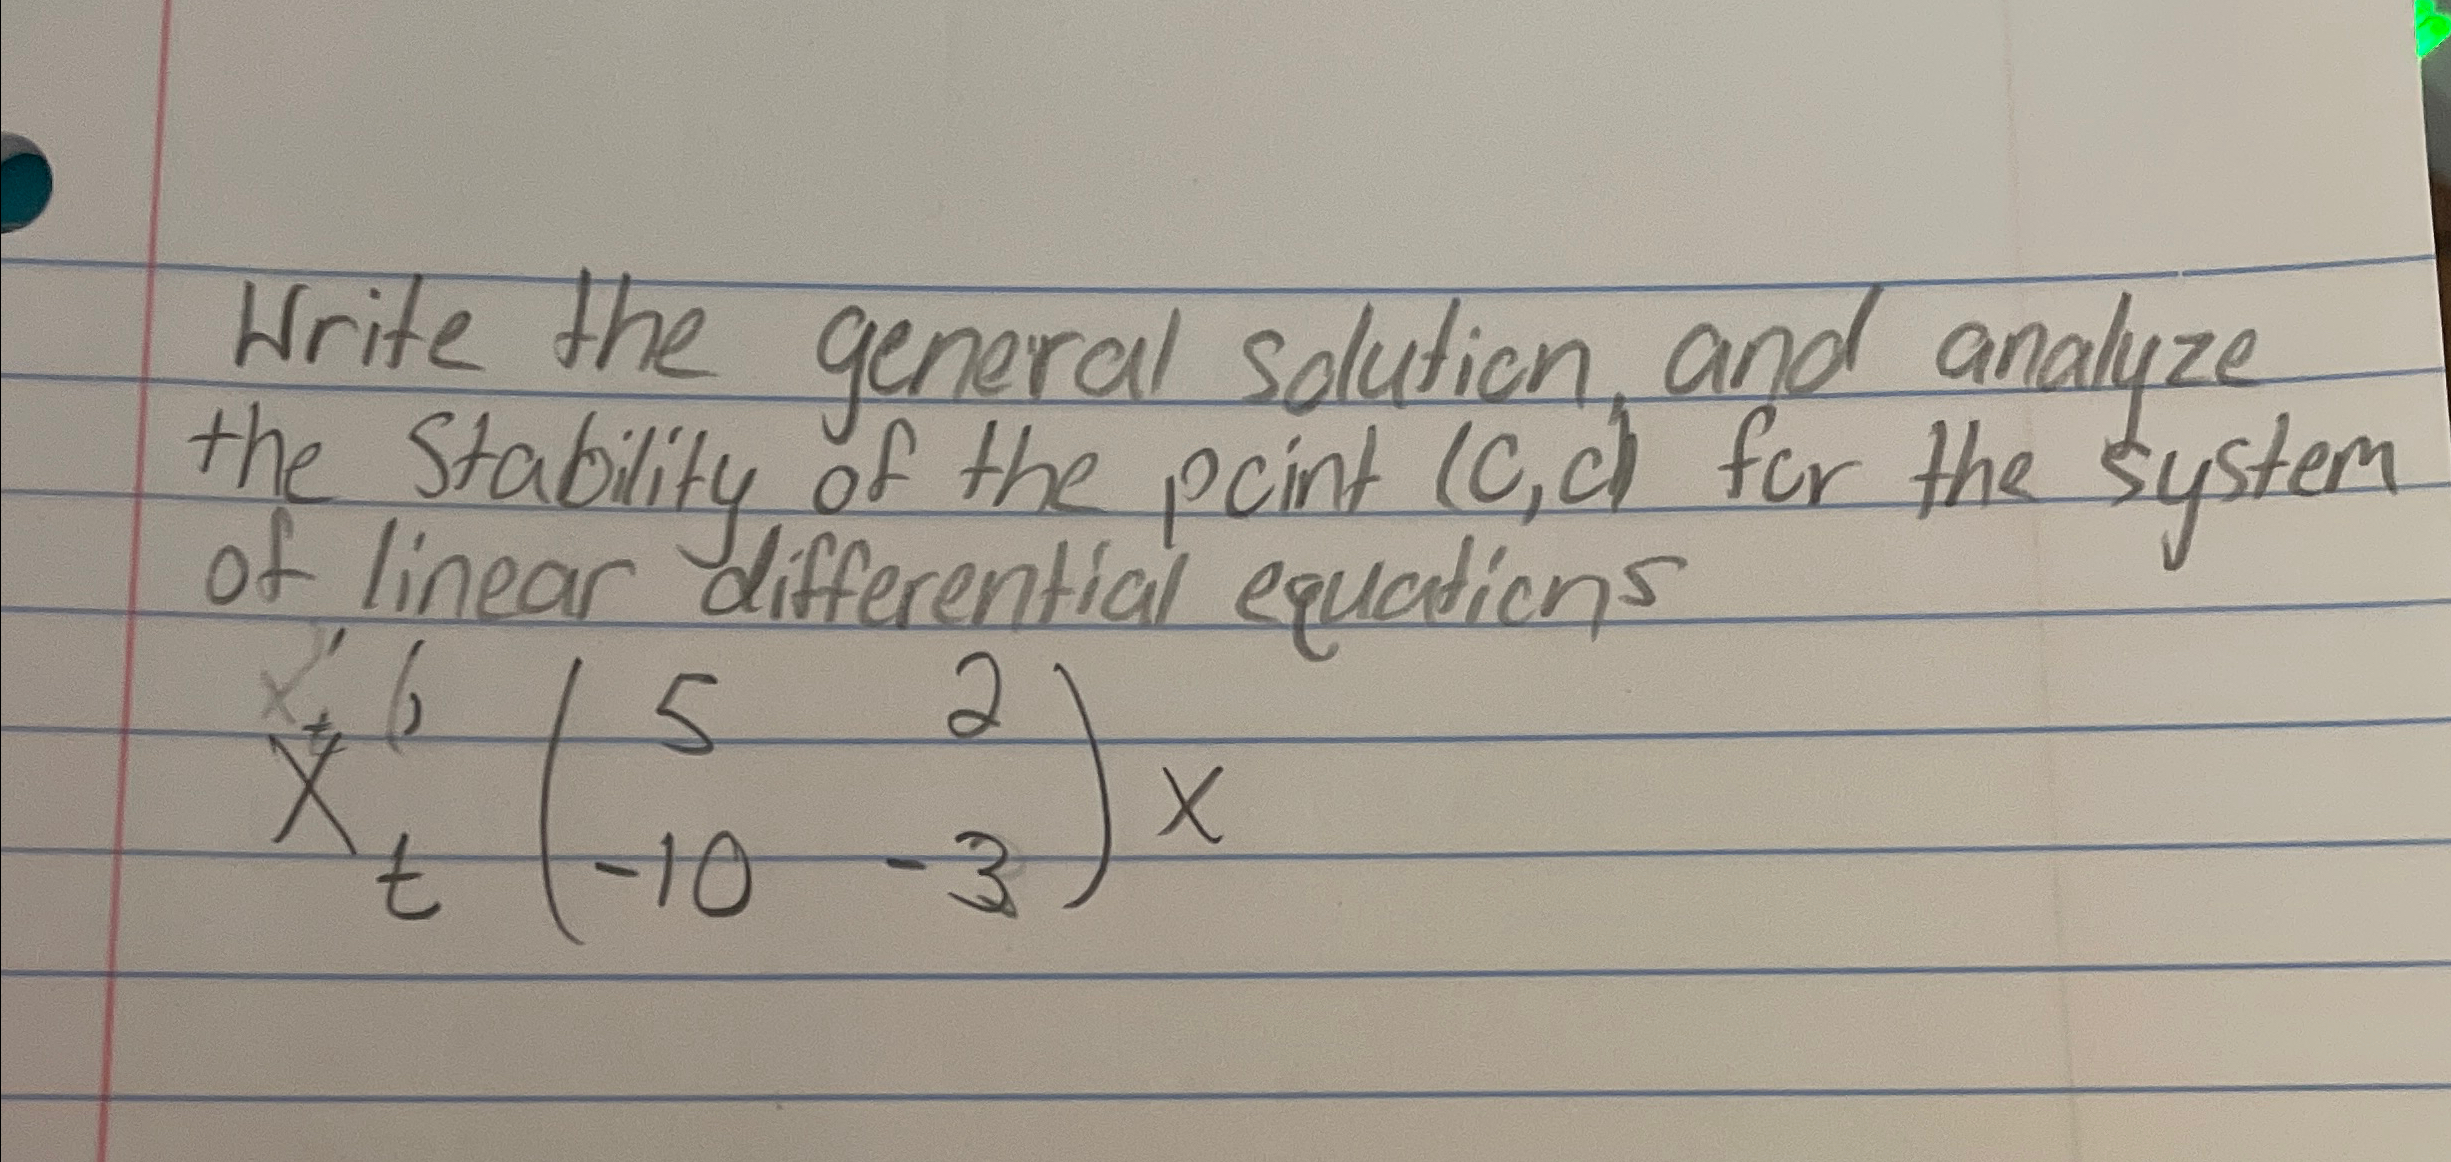 Write the general solution, and analyze
the stability of the point (0,0) for the system
of linear differential equations
x'
X t ( 5 2
-10 -3 ) x